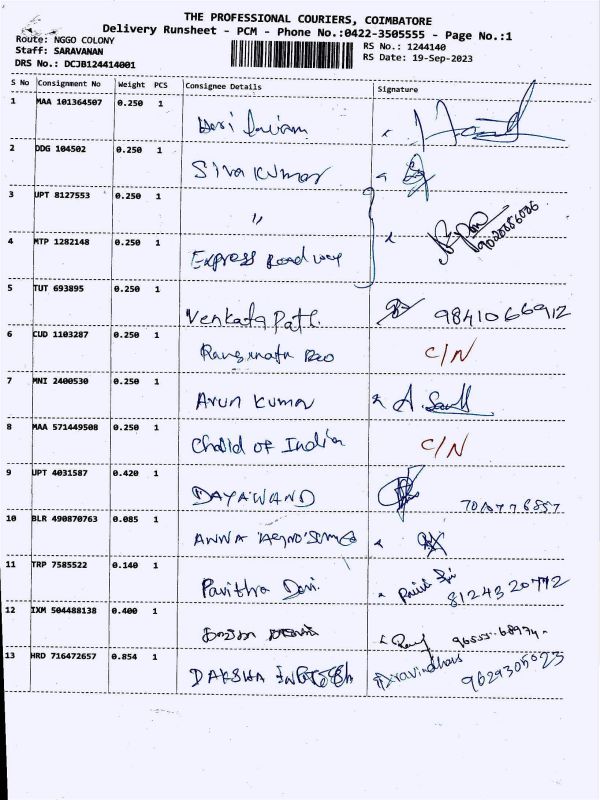 THE PROFESSIONAL COURIERS, COIMBATORE
Delivery Runsheet - PCM - Phone No.:0422-3505555 - Page No.:1
Route: NGGO COLONY
RS No.: 1244140
Staff: SARAVANAN
RS Date: 19-Sep-2023
DRS No.: DCJB124414001
S No Consignment No Weight PCS Consignee Details Signature
1 MAA 101364507 0.250 1
2 DDG 104502 0.250 1 Siva Kumar
3 UPT 8127553 0.250 1 "
4 MTP 1282148 0.250 1 Express Roadways
5 TUT 693895 0.250 1 Venkata Pati 9841066912
6 CUD 1103287 0.250 1 Ranganata Rao C/N
7 MNI 2400530 0.250 1 Arun Kumar
8 MAA 571449508 0.250 1 Child of India C/N
9 UPT 4031587 0.420 1 DAYAWAND
10 BLR 490870763 0.085 1 ANNA
11 TRP 7585522 0.140 1 Pavithra Devi
12 IXM 504488138 0.400 1
13 HRD 716472657 0.854 1 DAKSHA Aravindhars 9629305023